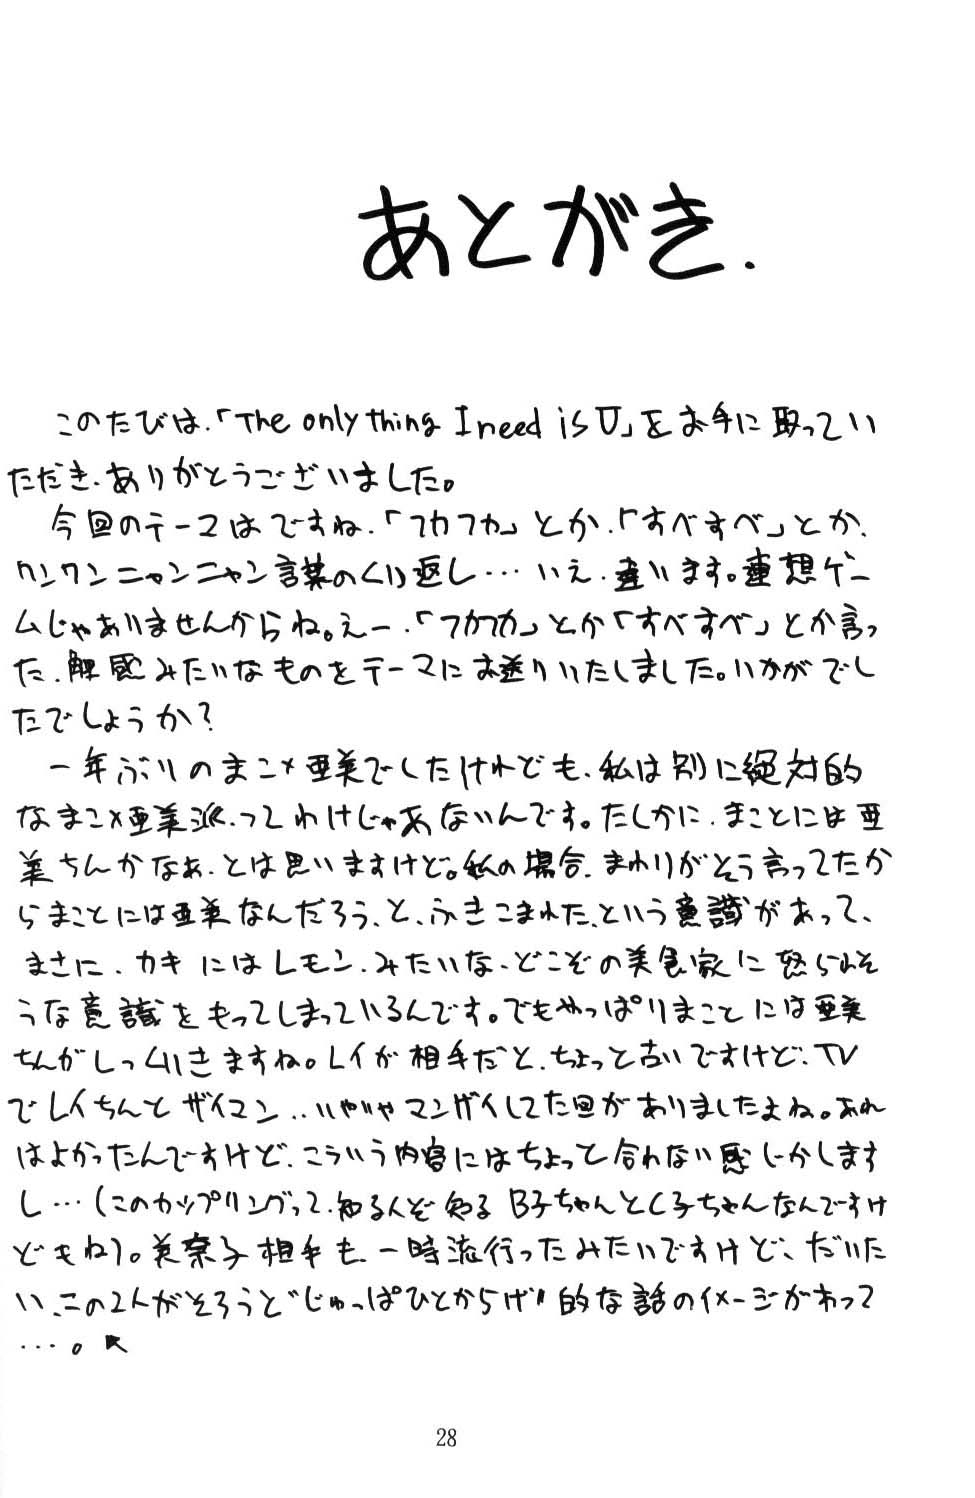 あとがき.
このたびは、「The only thing I need is U」をお手に取ってい
ただき、ありがとうございました。
今回のテーマはですね、「フカフカ」とか、「すべすべ」とか、
ワンワンニャンニャン言葉のくり返し…いえ、違います。連想ゲー
ムじゃありませんからね。えー、「フカフカ」とか「すべすべ」とか言っ
た、触感みたいなものをテーマにお送りいたしました。いかがでし
たでしょうか？
一年ぶりのまこ×亜美でしたけれども、私は別に絶対的
なまこ×亜美派、ってわけじゃあないんです。たしかに、まことには亜
美ちんかなぁ、とは思いますけど。私の場合、まわりがそう言ってたか
らまことには亜美なんだろう、と、ふきこまれた、という意識があって、
まさに、カキにはレモン、みたいな、どこぞの美食家に怒られそ
うな意識をもってしまっているんです。でもやっぱりまことには亜美
ちんがしっくりきますね。レイが相手だと、ちょっと古いですけど、TV
でレイちんとザイマン‥いやいやマンザイしてた回がありましたよね。あれ
はよかったんですけど、こういう内容にはちょっと合わない感じがします
し…(このカップリングって、知るんぞ知るB子ちゃんとC子ちゃんなんですけ
どもね)。美奈子相手も、一時流行ったみたいですけど、だいた
い、この2人がそろうと〝じゅっぱひとからげ〟的な話のイメージがわって
…。↖
28